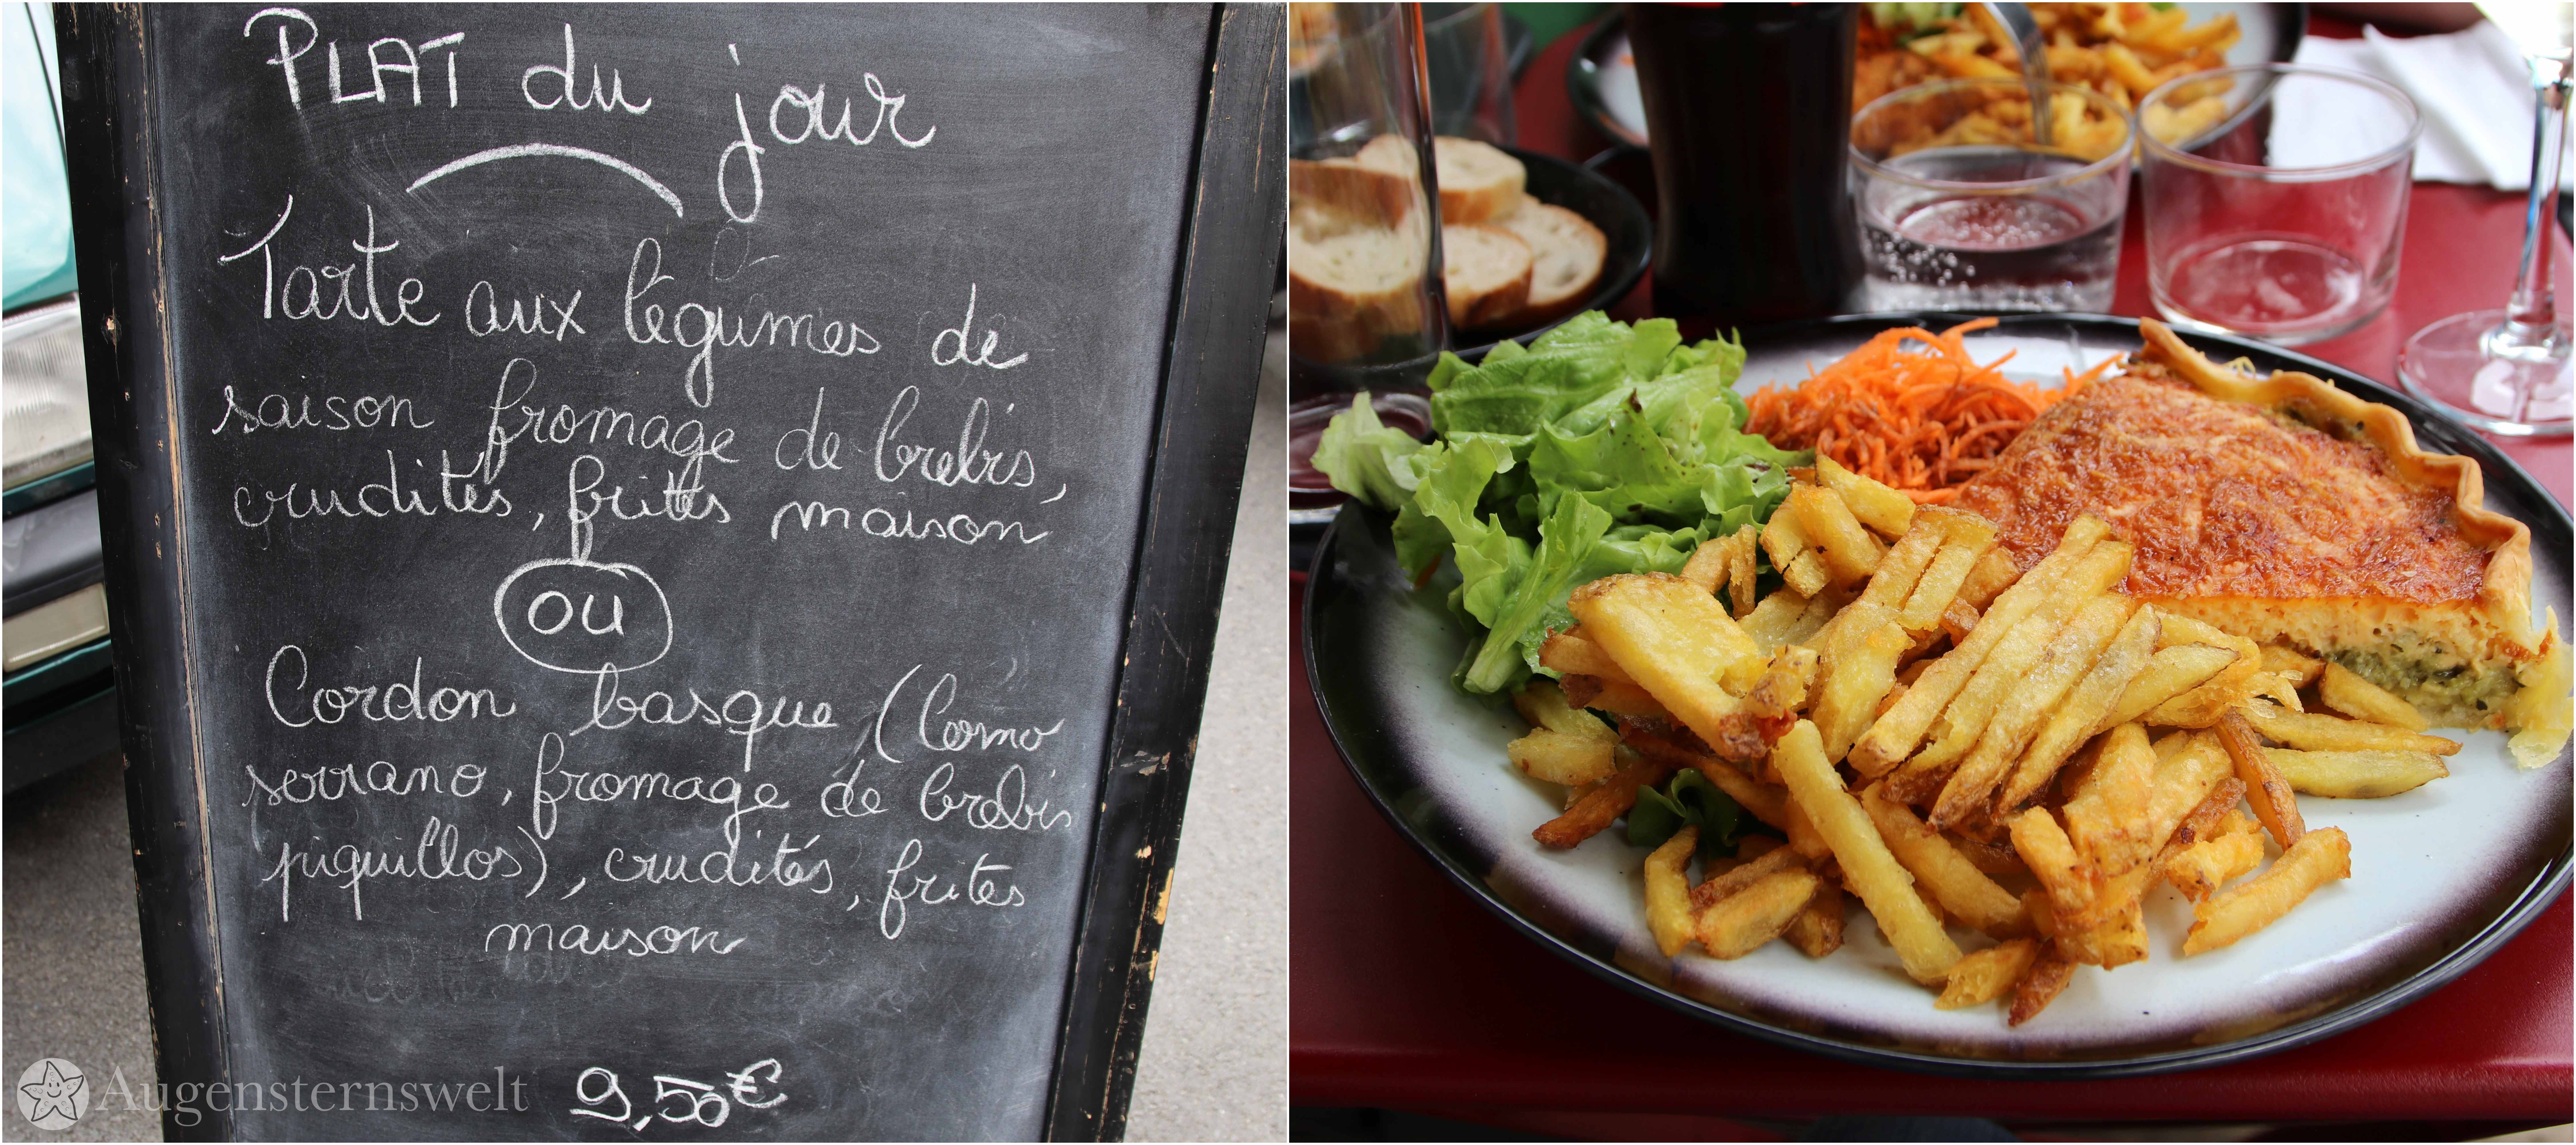 PLAT du jour
Tarte aux légumes de
saison fromage de brebis,
crudités, frites maison
OU
Cordon basque (Lomo
serrano, fromage de brebis
piquillos), crudités, frites
maison
9,50€
Augensternswelt